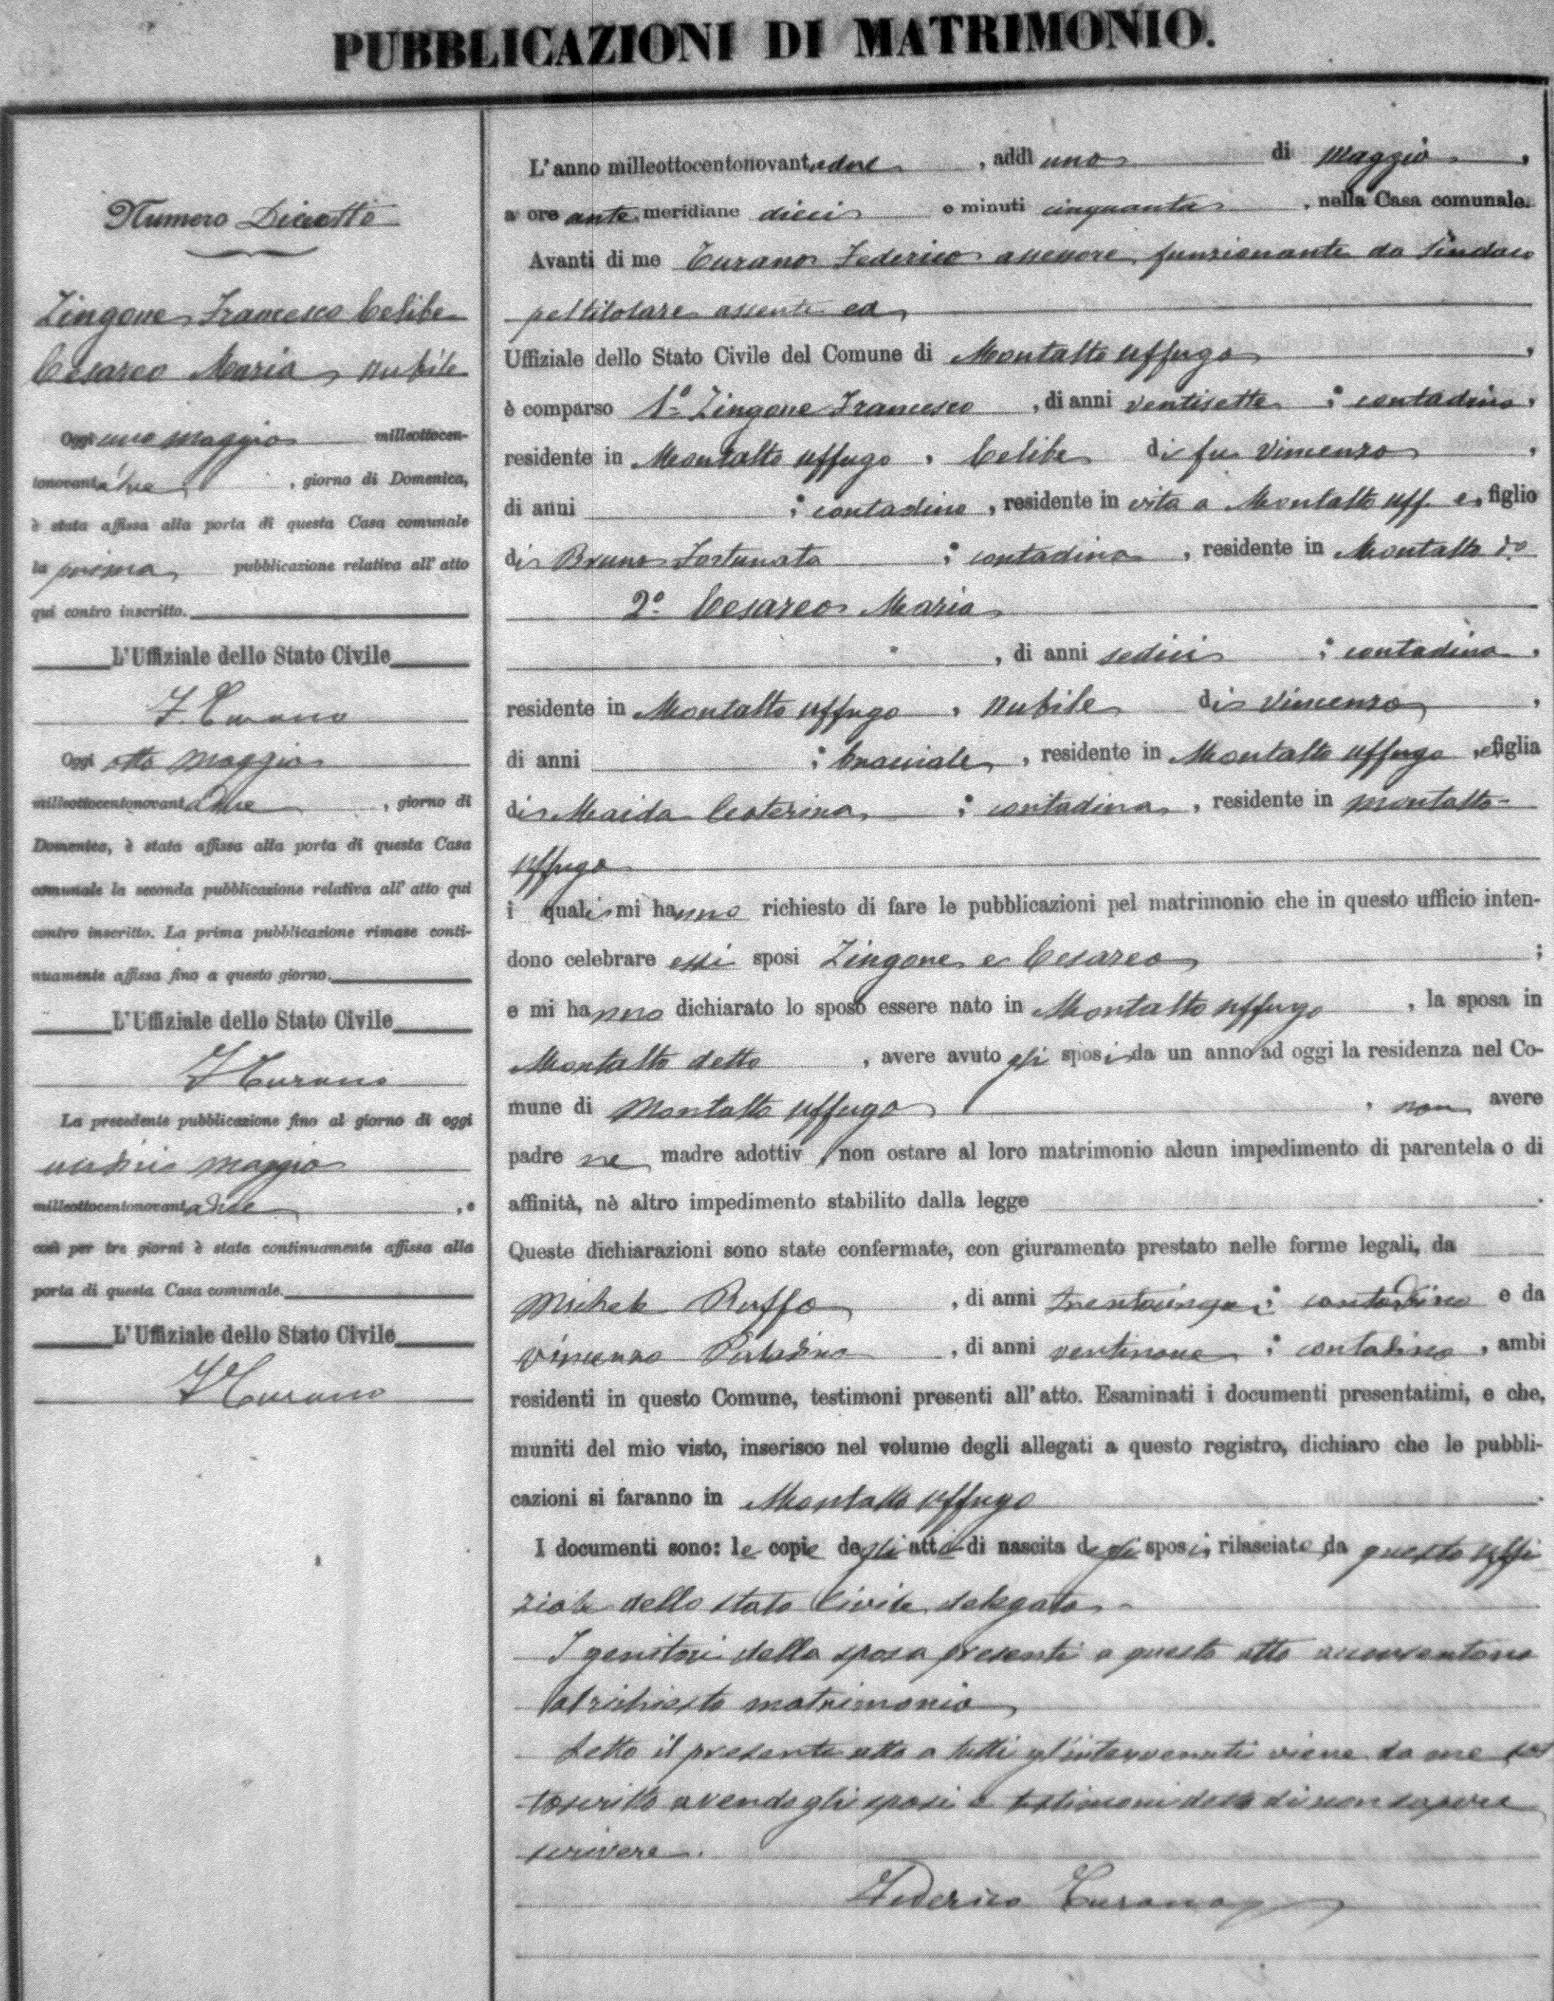 PUBBLICAZIONI DI MATRIMONIO.
Numero Diciotto
Zingone Francesco Celibe
Cesareo Maria nubile
Oggi uno maggio milleottocen-
tonovantadue, giorno di Domenica,
è stata affissa alla porta di questa Casa comunale
la prima pubblicazione relativa all' atto
qui contro inscritto.
L'Uffiziale dello Stato Civile
F. Turano
Oggi otto maggio
milleottocentonovantadue, giorno di
Domenica, è stata affissa alla porta di questa Casa
comunale la seconda pubblicazione relativa all' atto qui
contro inscritto. La prima pubblicazione rimase conti-
nuamente affissa fino a questo giorno.
L'Uffiziale dello Stato Civile
F Turano
La precedente pubblicazione fino al giorno di oggi
undici maggio
milleottocentonovantadue, e
così per tre giorni è stata continuamente affissa alla
porta di questa Casa comunale.
L'Uffiziale dello Stato Civile
F Turano
L'anno milleottocentonovantadue, addì uno di Maggio,
a ore ante meridiane dieci e minuti cinquanta, nella Casa comunale.
Avanti di me Turano Federico assessore funzionante da Sindaco
pel titolare assente ed
Uffiziale dello Stato Civile del Comune di Montalto Uffugo,
è comparso 1º Zingone Francesco, di anni ventisette; contadino,
residente in Montalto Uffugo, Celibe di fu Vincenzo,
di anni ; contadino, residente in vita a Montalto Uff. e figlio
di Bruno Fortunata ; contadina, residente in Montalto do
2º Cesareo Maria
, di anni sedici ; contadina,
residente in Montalto Uffugo, nubile di Vincenzo,
di anni ; bracciale, residente in Montalto Uffugo, e figlia
di Maida Caterina ; contadina, residente in Montalto-
Uffugo
i quali mi hanno richiesto di fare le pubblicazioni pel matrimonio che in questo ufficio inten-
dono celebrare essi sposi Zingone e Cesareo ;
e mi hanno dichiarato lo sposo essere nato in Montalto Uffugo, la sposa in
Montalto detto, avere avuto gli sposi da un anno ad oggi la residenza nel Co-
mune di Montalto Uffugo, non avere
padre ne madre adottiv , non ostare al loro matrimonio alcun impedimento di parentela o di
affinità, nè altro impedimento stabilito dalla legge .
Queste dichiarazioni sono state confermate, con giuramento prestato nelle forme legali, da
Michele Ruffo, di anni trentacinque; contadino e da
Vincenzo Paladino, di anni ventinove; contadino, ambi
residenti in questo Comune, testimoni presenti all'atto. Esaminati i documenti presentatimi, e che,
muniti del mio visto, inserisco nel volume degli allegati a questo registro, dichiaro che le pubbli-
cazioni si faranno in Montalto Uffugo.
I documenti sono: le copie degli atti di nascita degli sposi, rilasciate da questo Uffi
ziale dello stato Civile delegato-
I genitori della sposa presenti a questo atto acconsentono
al richiesto matrimonio
Letto il presente atto a tutti gl'intervenuti viene da me sot
toscritto avendo gli sposi e testimoni detto di non sapere
scrivere.
Federico Turano